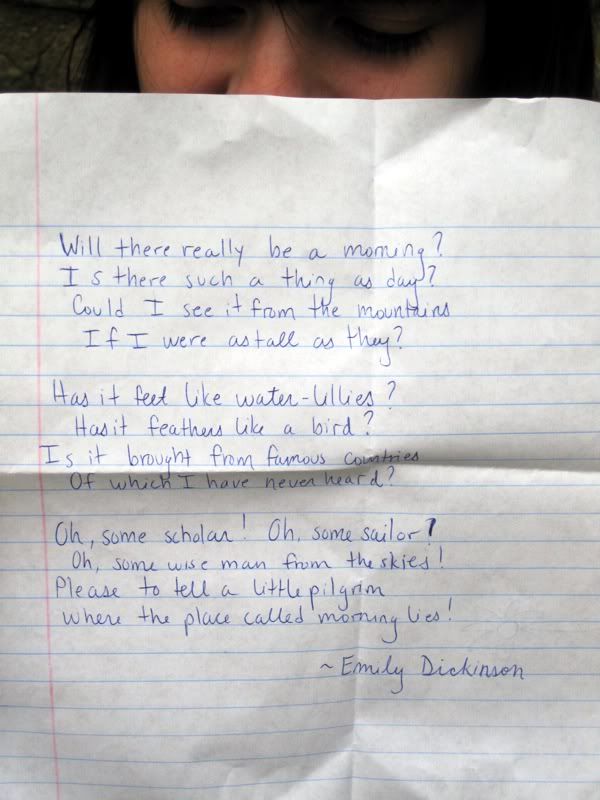 Will there really be a morning?
Is there such a thing as day?
Could I see it from the mountains
If I were as tall as they?
Has it feet like water-lillies?
Has it feathers like a bird?
Is it brought from famous countries
Of which I have never heard?
Oh, some scholar! Oh, some sailor!
Oh, some wise man from the skies!
Please to tell a little pilgrim
Where the place called morning lies!
~ Emily Dickinson